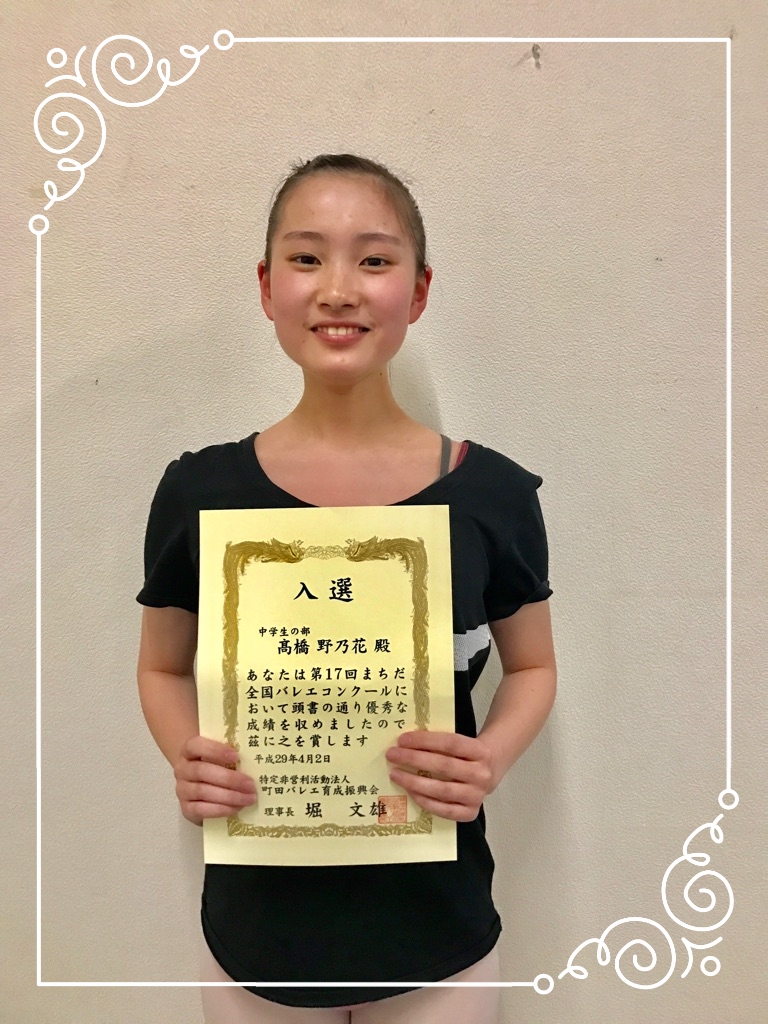 入選
中学生の部
髙橋 野乃花 殿
あなたは第17回まちだ
全国バレエコンクールに
おいて頭書の通り優秀な
成績を収めましたので
茲に之を賞します
平成29年4月2日
特定非営利活動法人
町田バレエ育成振興会
理事長 堀 文雄